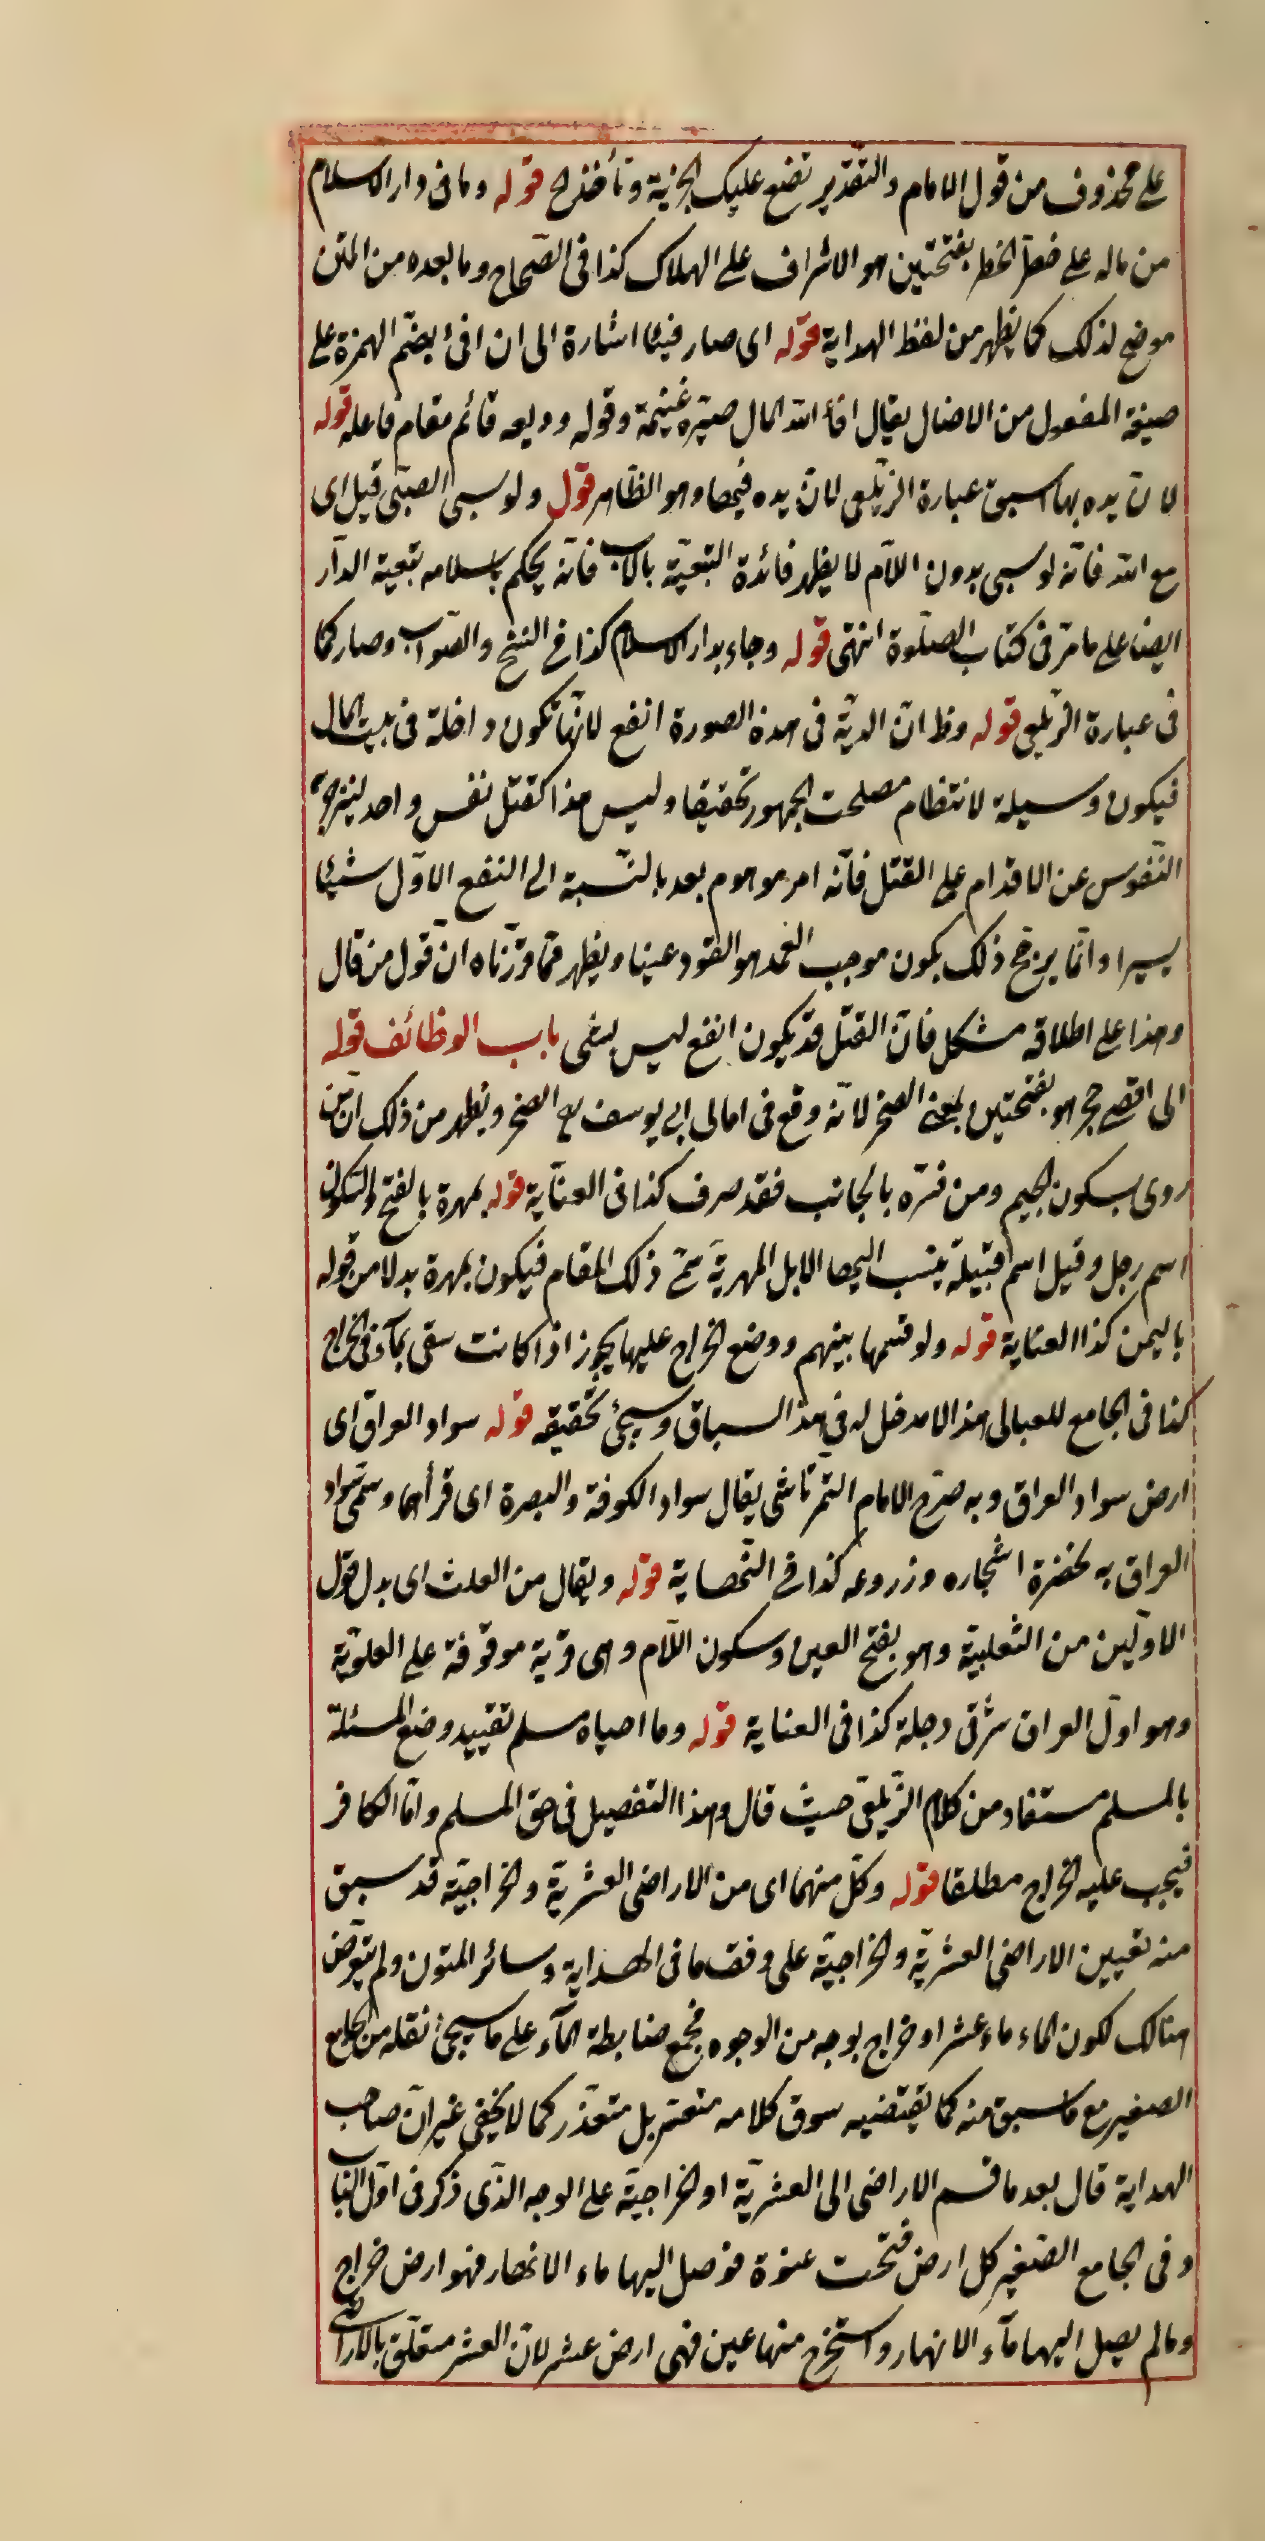 على محذوف من قول الامام والتقدير نضع عليك الجزية وتأخذ الخ قوله وما فى دار الاسلام
من ماله على خطر الخطر بفتحتين هو الاشراف على الهلاك كذا فى الصحاح وما بعده من المتن
موضح لذلك كما يظهر من لفظ الهداية قوله اى صار فيئا اشارة الى ان افئ بضم الهمزة على
صيغة المفعول من الافعال يقال افاء الله المال صيره غنيمة وقوله ووديعه قائم مقام فاعله قوله
لان يده بها سبق عبارة الزيلعى لان يده فيها وهو الظاهر قول ولو سبى الصبى قيل اى
مع فانه لو سبى بدون اللام لا يظهر فائدة التبعية بالاب فانه يحكم باسلامه بتعية الدار
ايضا على ما مر فى كتاب الصلوة انتهى قوله وجاء بدار الاسلام كذا فى النسخ والصواب وصار كما
فى عبارة الزيلعى قوله وظ ان الدية فى هذه الصورة انفع لانها تكون داخلة فى بيت المال
فيكون وسيلة لانتظام مصلحت الجمهور تحقيقا وليس هذا كقتل نفس واحد لينزجر
النفوس عن الاقدام على القتل فانه امر موهوم بعد بالنسبة الى النفع الاول شيئا
يسيرا وانما يرجح ذلك بكون موجب العمد هو القود عينا ويظهر مما قررناه ان قول من قال
وهذا على اطلاقه مشكل فان القتل قد يكون انفع ليس بشى باب الوظائف قوله
الى اقصى حجر هو بفتحتين بمعنى الصخر لانه وقع فى امالى ابى يوسف الصخر ويظهر من ذلك ان من
روى بسكون الجيم ومن فسره بالجانب فقد صرف كذا فى العناية قوله بمهرة بالفتح والسكون
اسم رجل وقيل اسم قبيلة ينسب اليها الابل المهرية سمى ذلك المقام فيكون بمهرة بدلا من قوله
باليمن كذا العناية قوله ولو قسمها بينهم ووضع الخراج عليها يجوز اذا كانت سقى بماء فى الخراج
كذا فى الجامع للعبالى هذا لا مدخل له فى هذا السباق وسيجئ تحقيقه قوله سواد العراق اى
ارض سواد العراق وبه صرح الامام التمرتاشى يقال سواد الكوفة والبصرة اى قراهما وسمى سواد
العراق به لخضرة اشجاره وزروعه كذا فى النهاية قوله ويقال من العلث اى بدل قول
الاولين من الثعلبية وهو بفتح العين وسكون اللام وهى قرية موقوفة على العلوية
وهو اول العراق شرقى دجلة كذا فى العناية قوله وما احياه مسلم تقييد وضع المسئلة
بالمسلم مستفاد من كلام الزيلعى حيث قال وهذا التفصيل فى حق المسلم واما الكافر
فيجب عليه الخراج مطلقا قوله وكل منهما اى من الاراضى العشرية والخراجية قد سبق
منه تعيين الاراضى العشرية والخراجية على وفق ما فى الهداية وسائر المتون ولم يتعرض
هنالك لكون الماء ماء عشر او خراج بوجه من الوجوه فجمع ضابطة الماء على ما سيجئ نقله من الجامع
الصغير مع ما سبق منه كما يقتضيه سوق كلامه متعسر بل متعذر كما لا يخفى غير ان صاحب
الهداية قال بعد ما قسم الاراضى الى العشرية او الخراجية على الوجه الذى ذكر فى اول الباب
وفى الجامع الصغير كل ارض فتحت عنوة فوصل اليها ماء الانهار فهو ارض خراج
ومالم يصل اليها ماء الانهار واستخرج منها عين فهى ارض عشر لان العشر متعلق بالاراضى